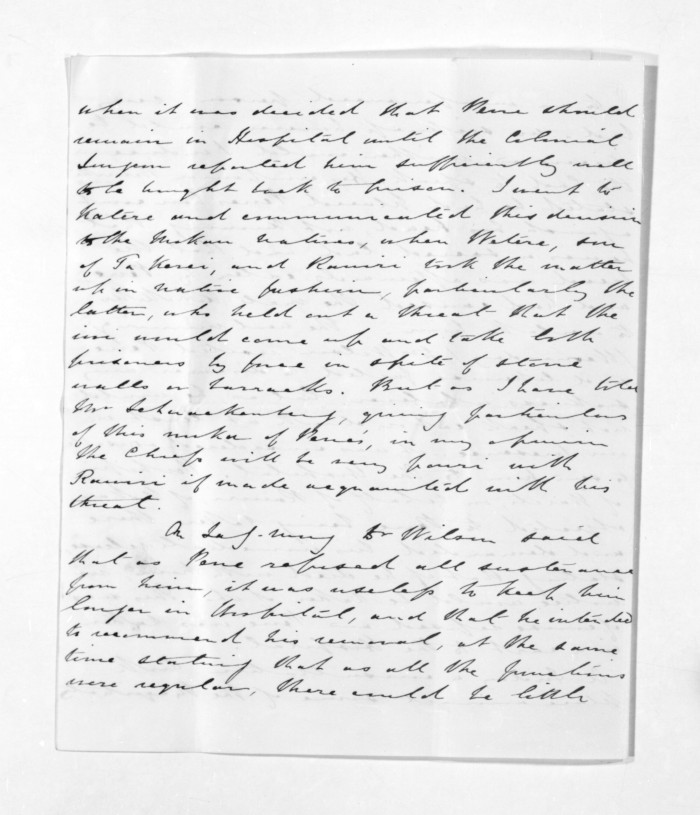 when it was decided that Pene should
remain in Hospital until the Colonial
Surgeon reported him sufficiently well
to be brought back to prison. I went to
and communicated this decision
to the natives, when Watere, son
of Ta Kerei, and Rawiri took the matter
up in native fashion, particularly the
latter, who held out a threat that the
iwi would come up and take both
prisoners by force in spite of stone
walls or barracks. But as I have told
Mr Schnackenberg, giving particulars
of this of Penes, in my opinion
the Chiefs will be very pouri with
Rawiri if made acquainted with his
threat.
On Dr Wilson said
that as Pene refused all sustenance
from him, it was useless to keep him
longer in Hospital, and that he intended
to recommend his removal, at the same
time stating that as all the functions
were regular, there could be little